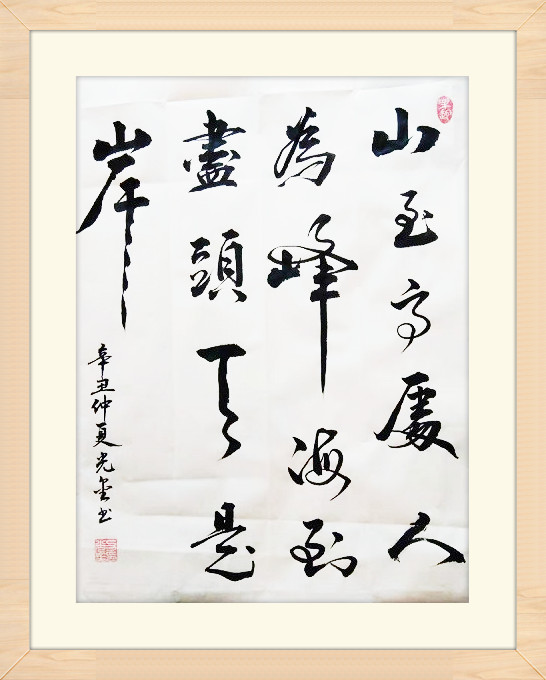 山至高處人
為峰海到
盡頭天是
岸
辛丑仲夏光书